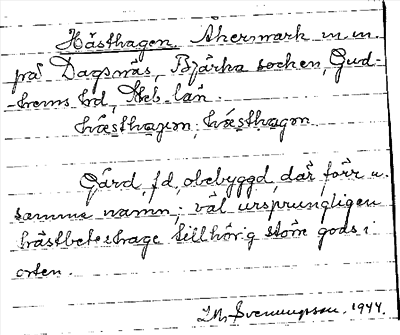 Hästhagen. Åkermark m.m.
på Dagsnäs, Bjärka socken, Gud-
-hems hd, Skb. län.
hästhagen, hästhagen
Gård, fd, obebyggd, där förr u.
samma namn; väl ursprungligen
hästbeteshage tillhörig större gods i
orten.
Svenungsson. 1944.